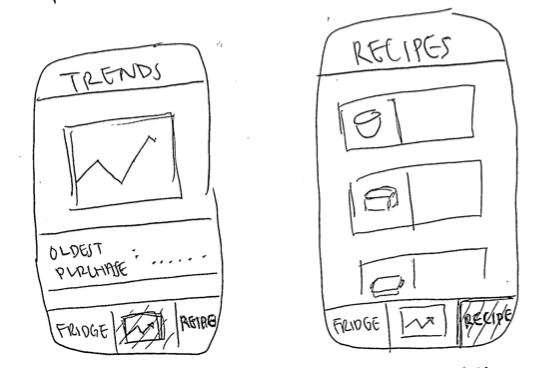 TRENDS
OLDEST
PURCHASE : ......
FRIDGE
RECIPE
RECIPES
FRIDGE
RECIPE